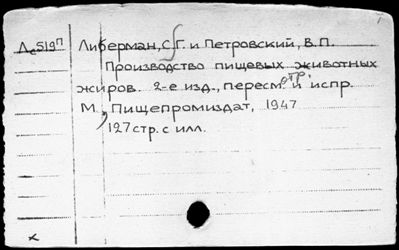 Лс519п Либерман, С.Г. и Петровский, В.П.
Производство пищевых животных
жиров. 2-е изд., пересм. и испр.
М., Пищепромиздат, 1947
127 стр. с илл.